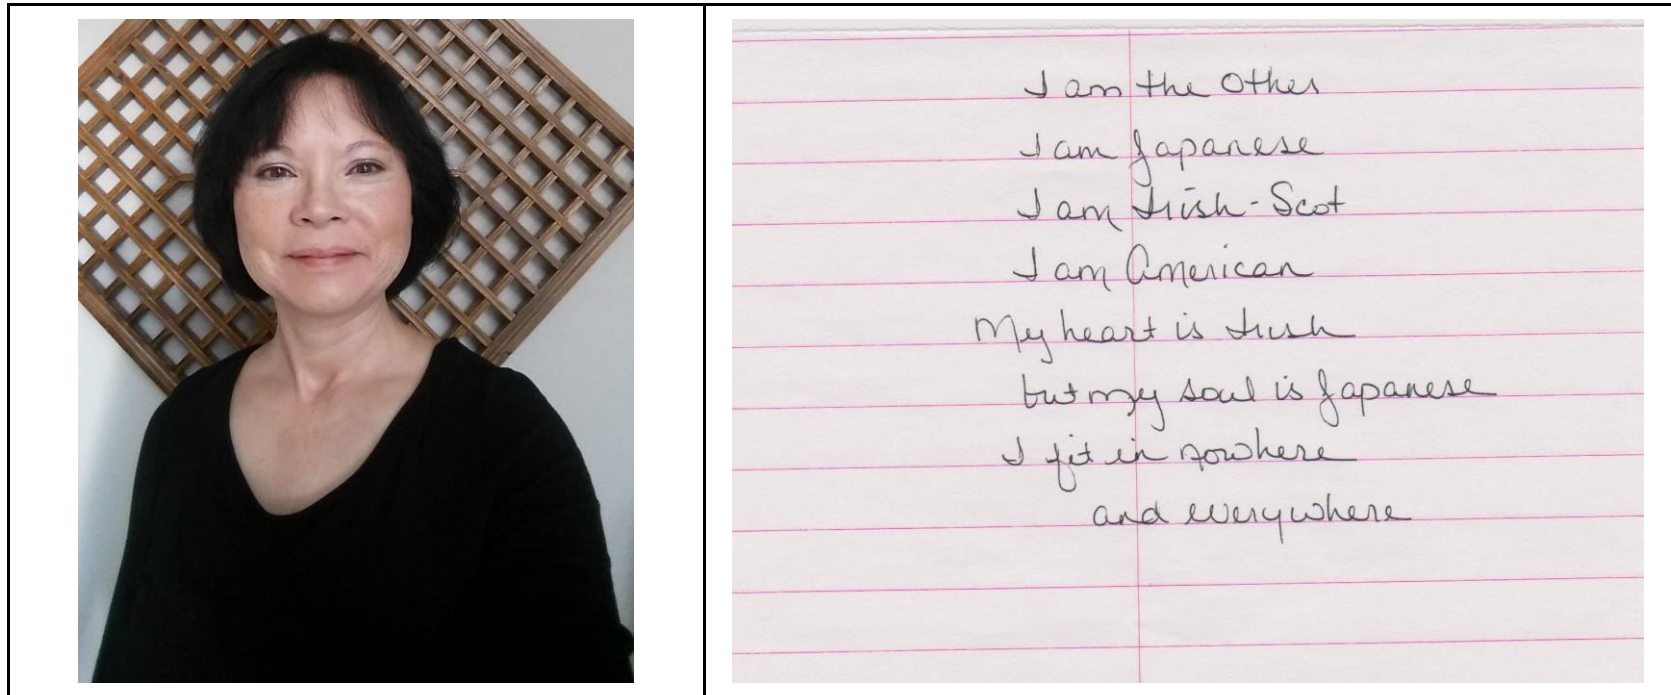 I am the Other
I am Japanese
I am Irish-Scot
I am American
My heart is Irish
but my soul is Japanese
I fit in nowhere
and everywhere